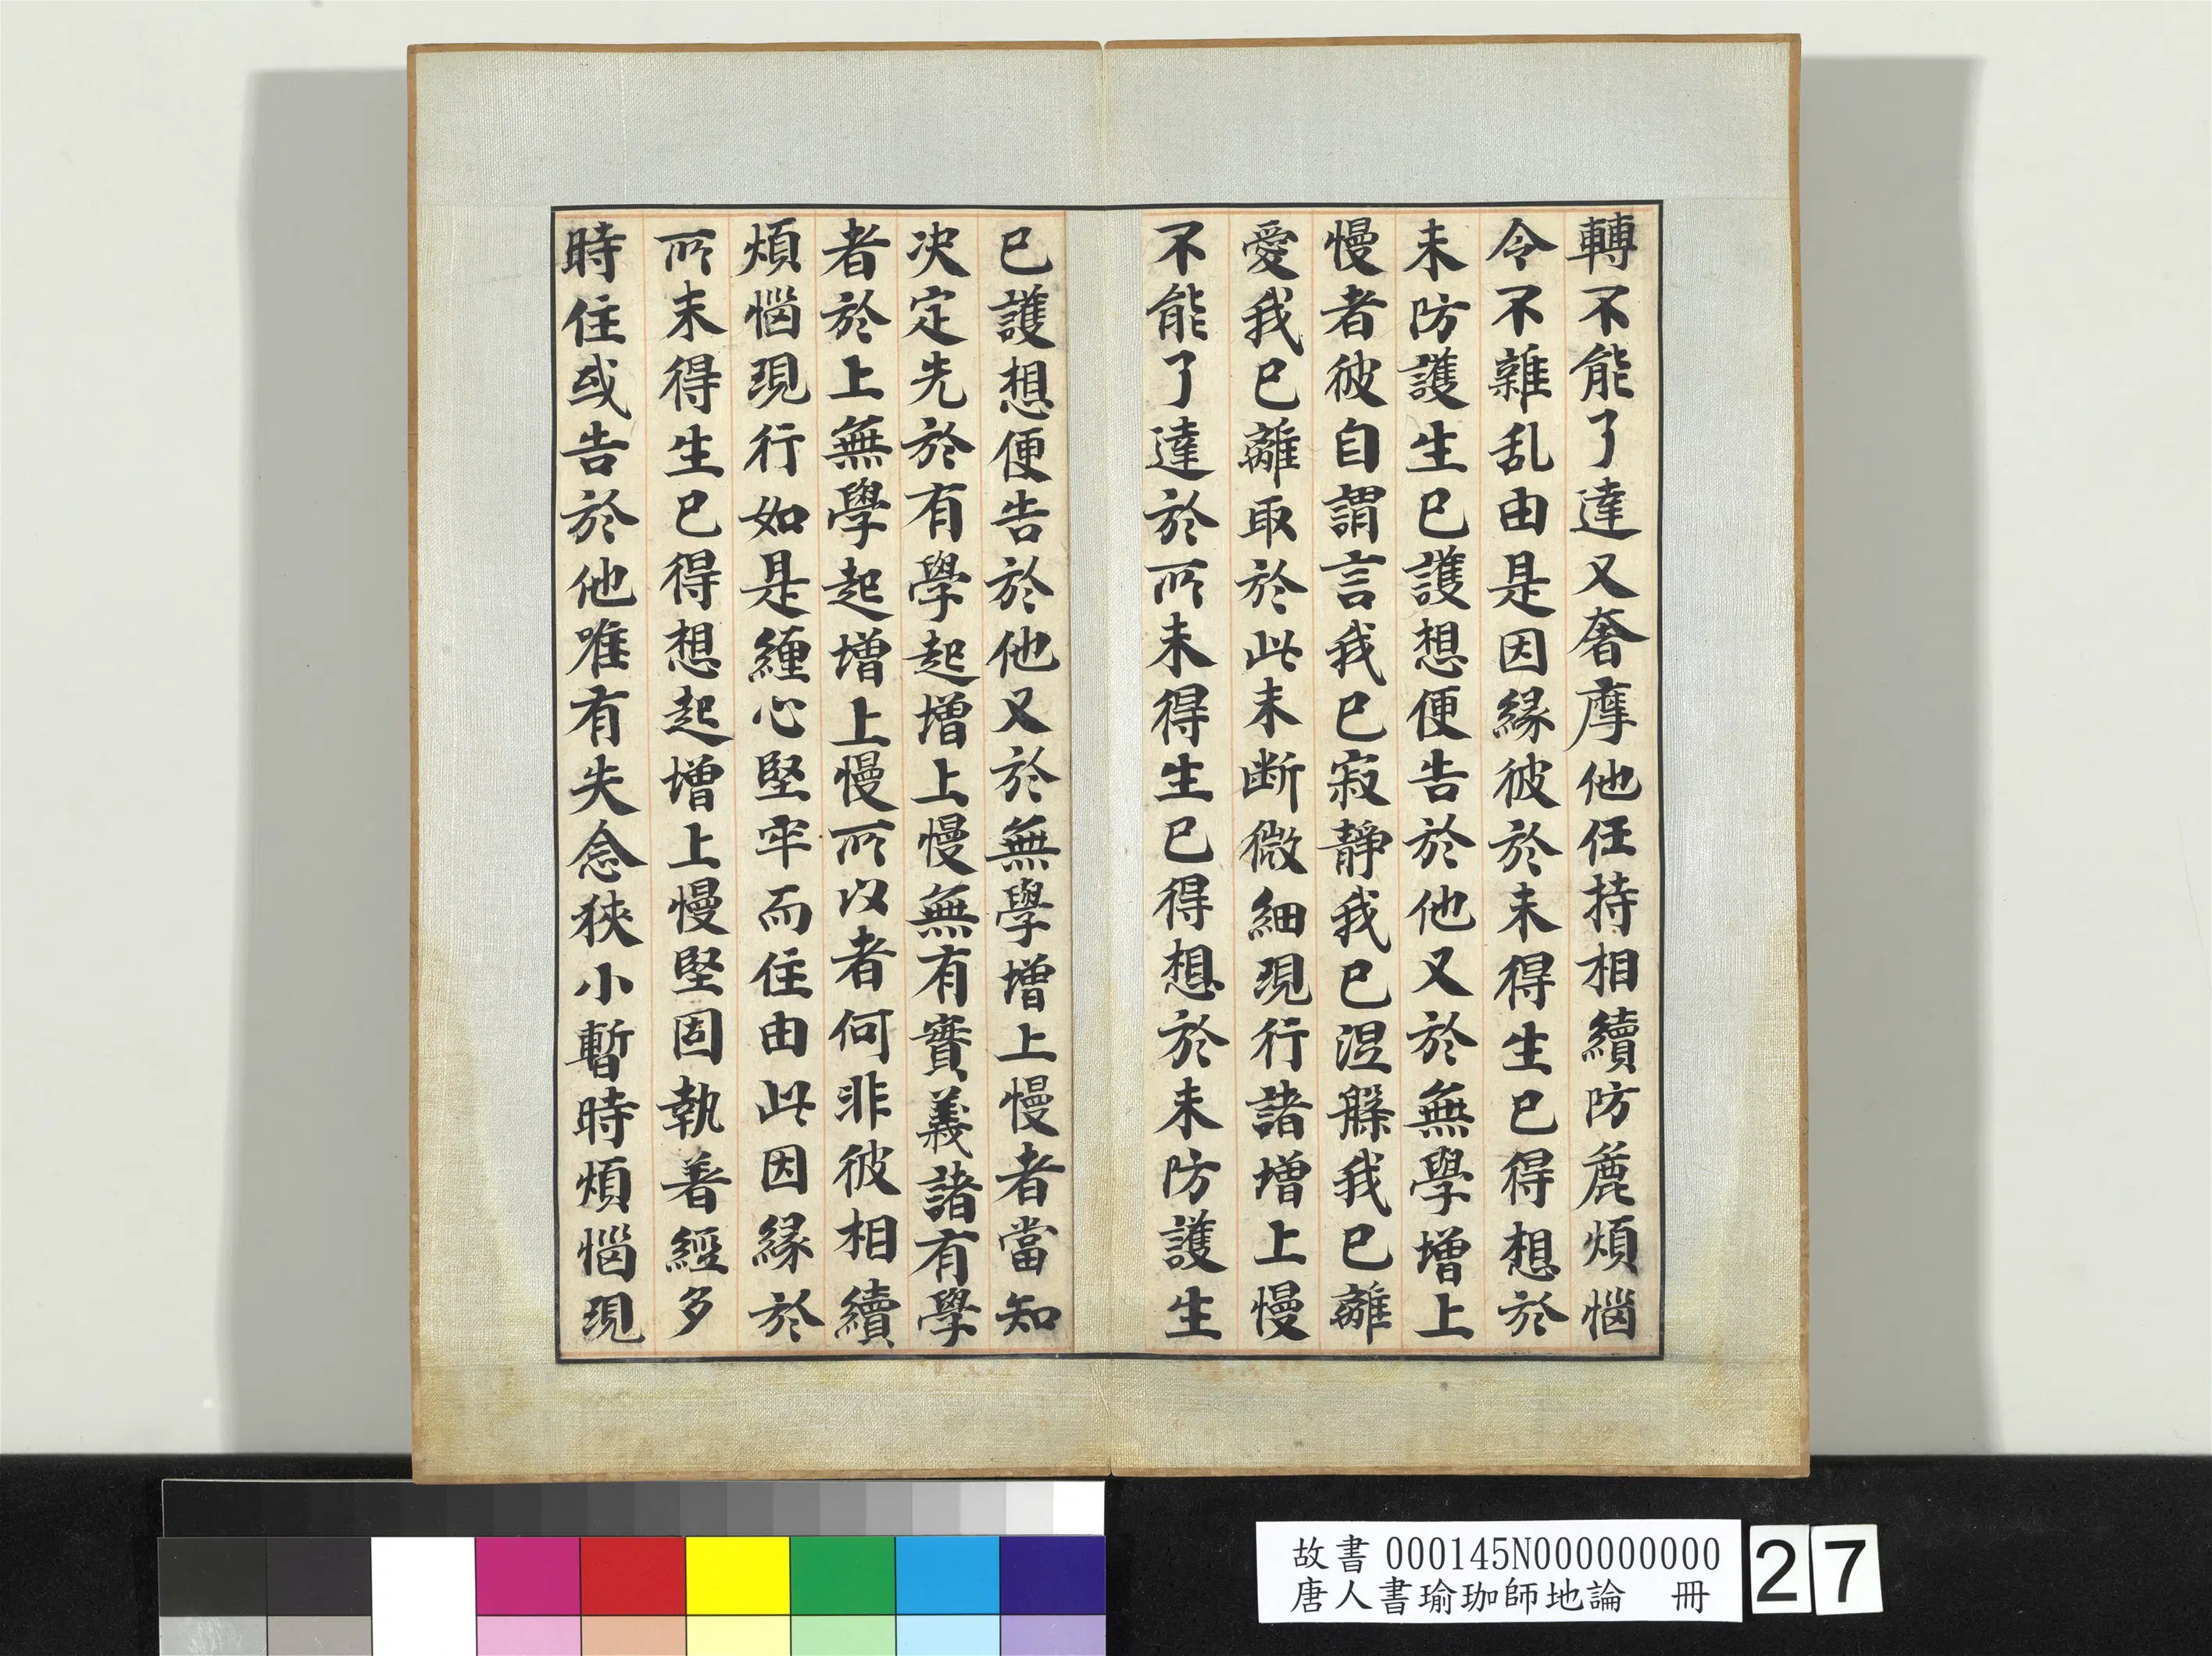 轉不能了達又奢摩他任持相續防麁煩惱
令不雜乱由是因緣彼於未得生已得想於
未防護生已護想便告於他又於無學增上
慢者彼自謂言我已寂靜我已涅槃我已離
愛我已離取於此未断微細現行諸增上慢
不能了達於所未得生已得想於未防護生
已護想便告於他又於無學增上慢者當知
决定先於有學起增上慢無有實義諸有學
者於上無學起增上慢所以者何非彼相續
煩惱現行如是纏心堅牢而住由此因緣於
所未得生已得想起增上慢堅固執著經多
時住或告於他唯有失念狹小暫時煩惱現
故書 000145N000000000
唐人書瑜珈師地論 冊
27